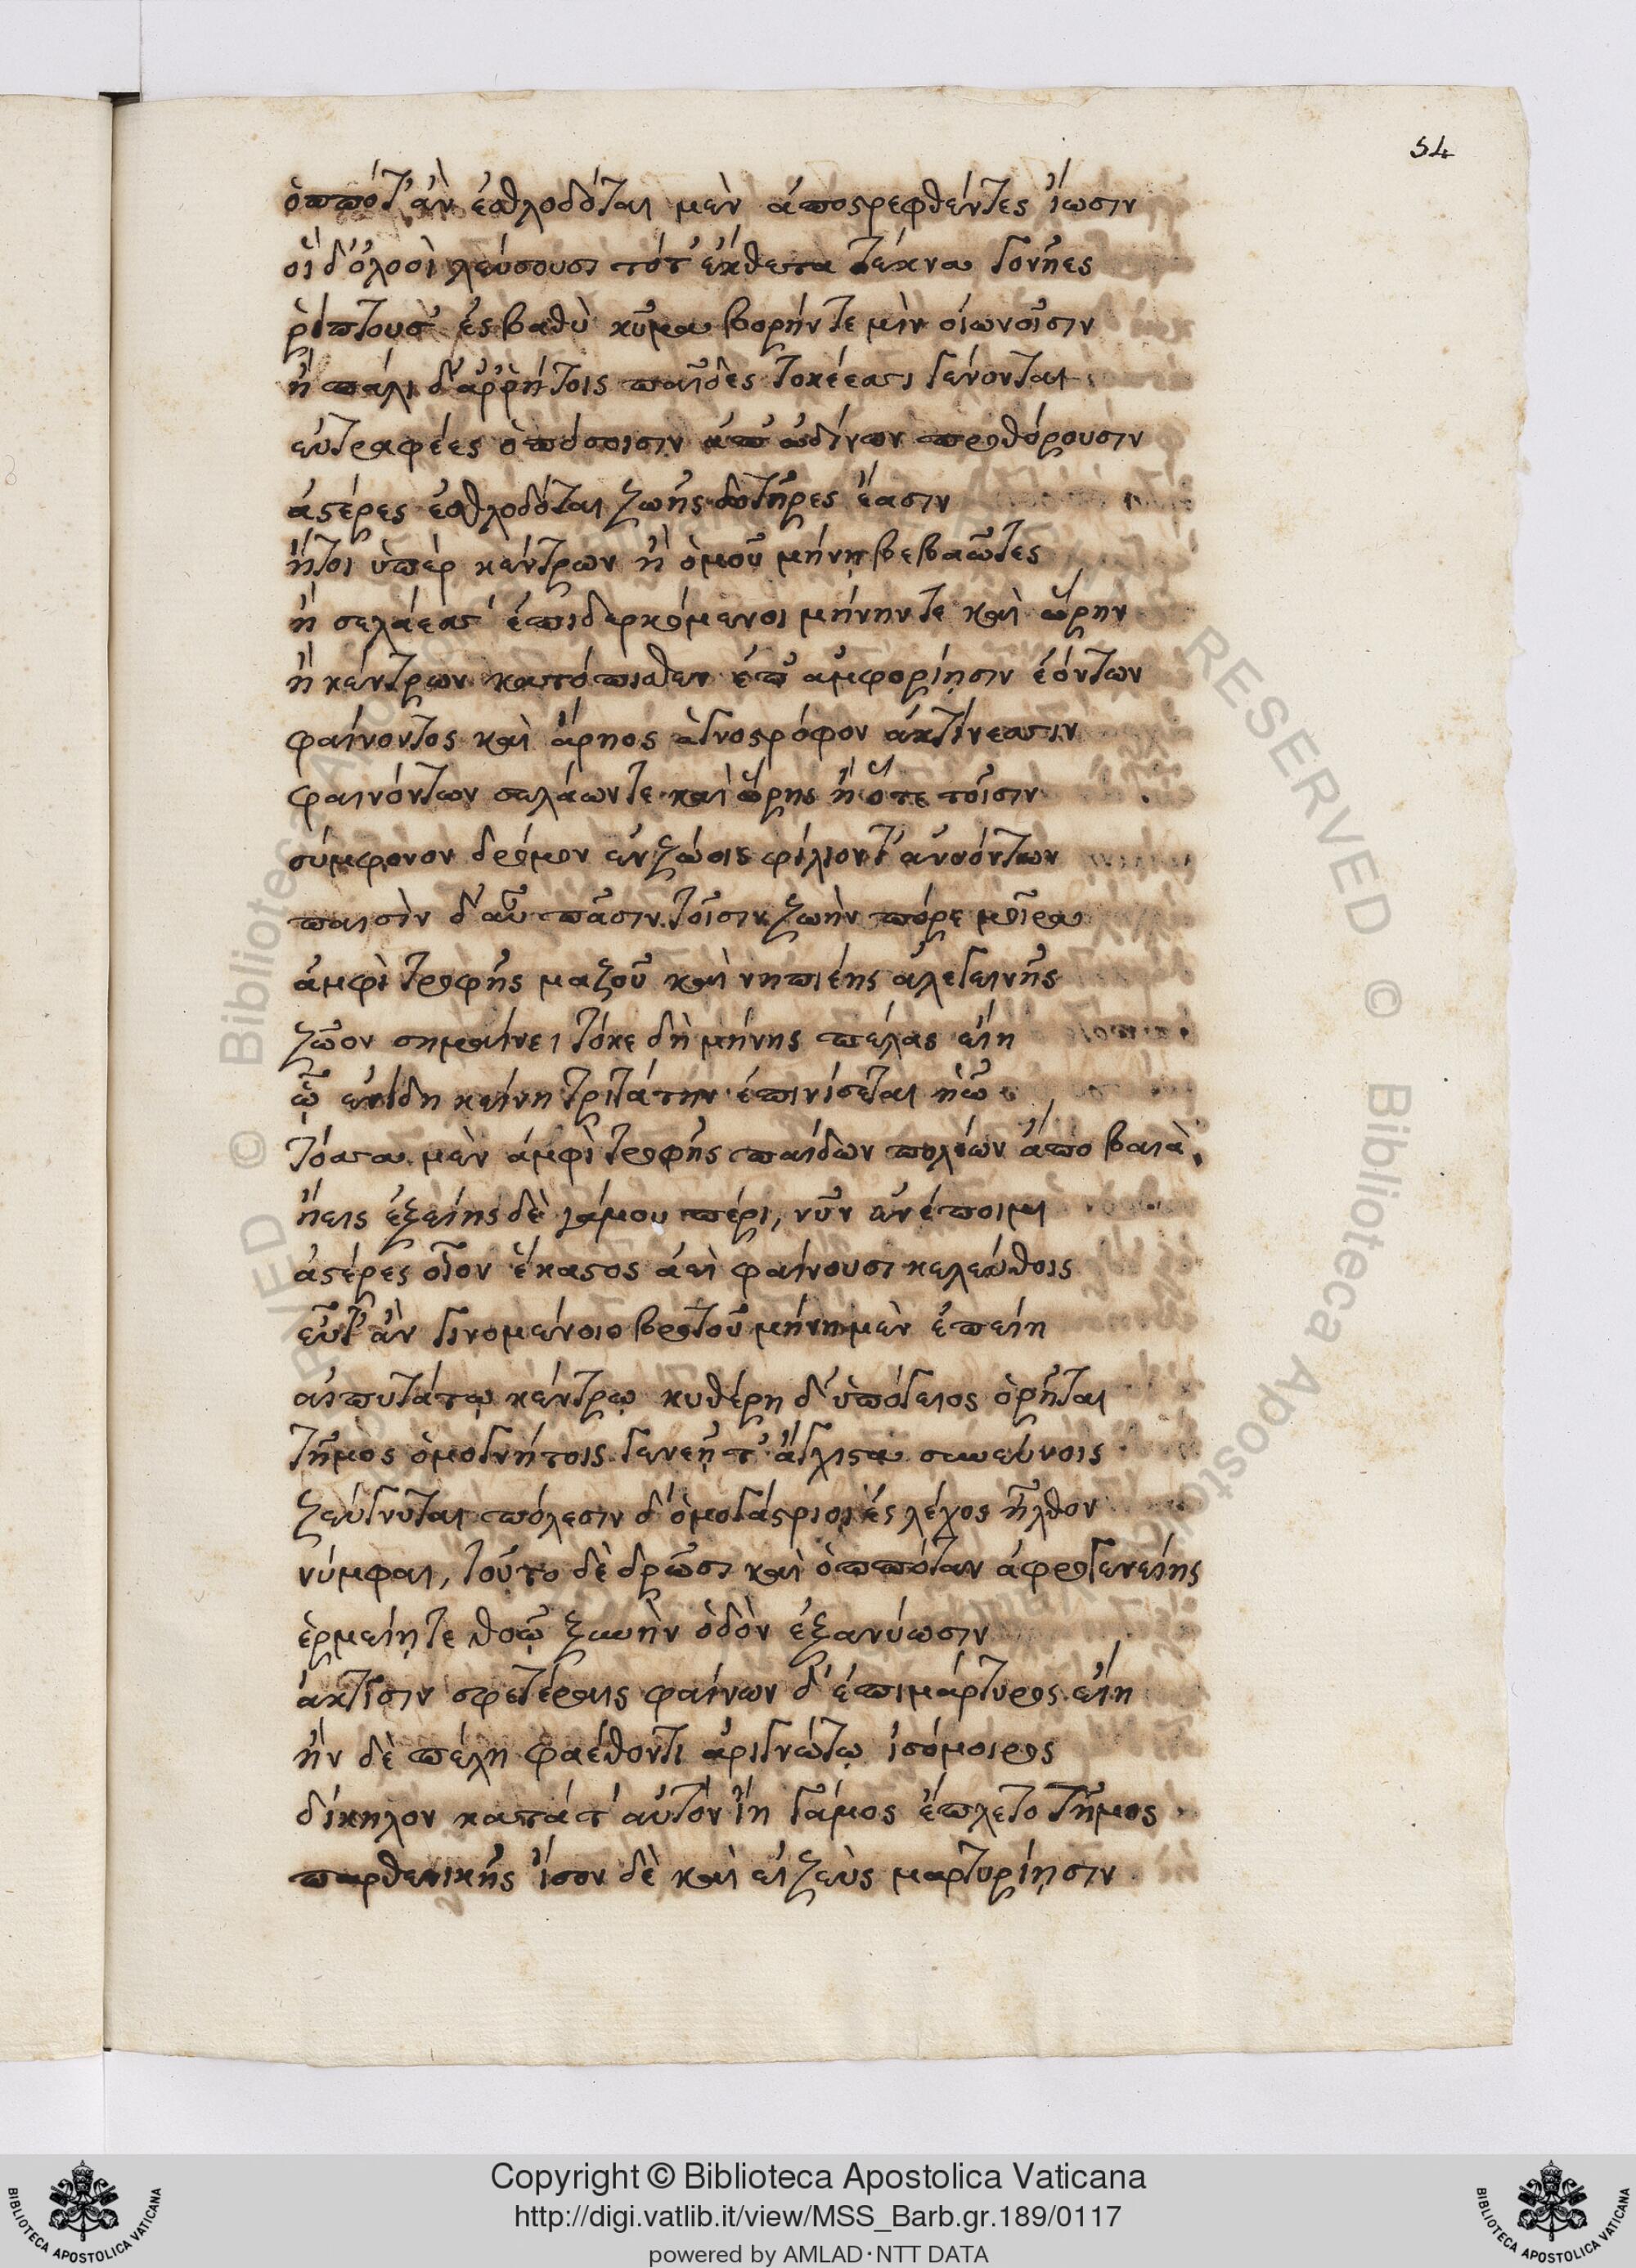 54
ὁππότ' ἂν ἐσθλοδόται μὲν ἀποστρεφθέντες ἴωσιν
οἱ δ' ὀλοοὶ λεύσουσι τότ' ἔκθετα τέκνα γονῆες
ῥίπτουσ' ἐς βαθὺ κῦμα βορήν τε μὶν οἰωνοῖσιν
ἢ πάλι δ' ἀρρήτοις παῖδες τοκέεσσι γένονται
εὐτραφέες ὁπόσοισιν ἀπ' ὠδίνων προθόρουσιν
ἀστέρες ἐσθλοδόται ζωῆς δοτῆρες ἔασιν
ἤτοι ὑπὲρ κέντρων ἢ ὁμοῦ μήνῃ βεβαῶτες
ἢ σελάεσσ' ἐπιδερκόμενοι μήνην τε καὶ ὥρην
ἢ κέντρων κατόπισθεν ἐπ' ἀμφορίῃσιν ἐόντων
φαίνοντος καὶ ἄρηος ἀγνοστρόφον ἀκτίνεσσιν
φαινόντων σελάων τε καὶ ὥρης ἢ ὅτε τοῖσιν
σύμφρονον δρόμον ἐν ζώοις φίλιόν τ' ἀνυόντων
παισὶν δ' αὖ πᾶσιν τοῖσιν ζωὴν πόρε μοῖρα
ἀμφὶ τροφῆς μαζοῦ καὶ νηπιέης ἀλεγεινῆς
ζῶον σημαίνει τόκε δὴ μήνης πέλας εἴη
ᾧ ἐνίδη κείνη τριτάτην ἐπινίσεται ἠῶ
τόσσα μὲν ἀμφὶ τροφῆς παίδων πολέων ἄπο βαιὰ
ἥεις ἑξείης δὲ γάμου πέρι, νῦν ἀνέποιμι
ἀστέρες οἷον ἕκαστος ἀεὶ φαίνουσι κελεύθοις
εὖτ' ἂν γινομένοιο βροτοῦ μήνη μὲν ἐπείη
αἰπυτάτῳ κέντρῳ κυθέρη δ' ὑπόγειος ὁρῆται
τῆμος ὁμογνήτοις γενεῇ τ' ἄγχιστα συνεύνοις
ζεύγνυται πόλεσιν δ' ὁμογάστριοι ἐς λέχος ἦλθον
νύμφαι, τοῦτο δὲ δρῶσι καὶ ὁππόταν ἀφρογενείης
ἑρμείῃ τε θοῷ ξυνὴν ὁδὸν ἐξανύωσιν
ἀκτῖσιν σφετέραις φαίνων δ' ἐπιμάρτυρος εἴη
ἢν δὲ πέλη φαέθοντι ἀριγνώτῳ ἰσόμοιρος
δίκηλον κατάτ' αὐτὸν ἴη γάμος ἔπλετο τῆμος
παρθενικῆς ἴσον δὲ καὶ εἰ ζεὺς μαρτυρίῃσιν
Copyright © Biblioteca Apostolica Vaticana
http://digi.vatlib.it/view/MSS_Barb.gr.189/0117
powered by AMLAD·NTT DATA
BIBLIOTECA APOSTOLICA VATICANA
BIBLIOTECA APOSTOLICA VATICANA